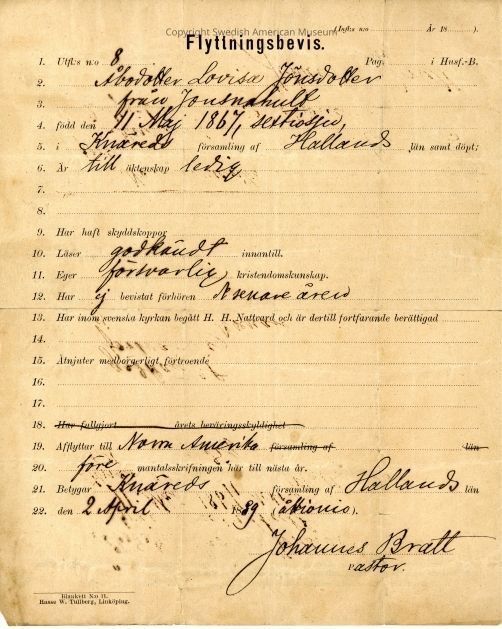 Copyright Swedish American Museum
(Inflt: n:o År 18 ).
Flyttningsbevis.
1. Utfl:s n:o 8 Pag. i Husf.-B.
2. Åbodotter Lovisa Jönsdotter
3. från Jonsnahult
4. född den 11 Maj 1867, sextiosju,
5. i Knäreds församling af Hallands län samt döpt;
6. Är till äktenskap ledig
7.
8.
9. Har haft skyddskoppor
10. Läser godkändt innantill.
11. Eger försvarlig kristendomskunskap.
12. Har ej bevistat förhören senare åren
13. Har inom svenska kyrkan begått H. H. Nattvard och är dertill fortfarande berättigad
14.
15. Åtnjuter medborgerligt förtroende
16.
17.
18. Har fullgjort årets beväringsskyldighet
19. Afflyttar till Norra Amerika församling af län
20. före mantalsskrifningen här till nästa år.
21. Betygar Knäreds församling af Hallands län
22. den 2 April 1889 (åttionio).
Johannes Bratt
Pastor.
Blankett N:o 11.
Hanse W. Tullberg, Linköping.